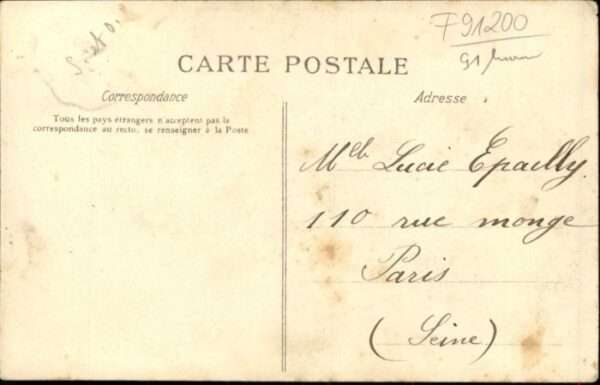 S. et O.
F91200
91
CARTE POSTALE
Correspondance
Tous les pays étrangers n'acceptent pas la
correspondance au recto, se renseigner à la Poste
Adresse
Melle Lucie Epailly.
110 rue monge
Paris
(Seine)